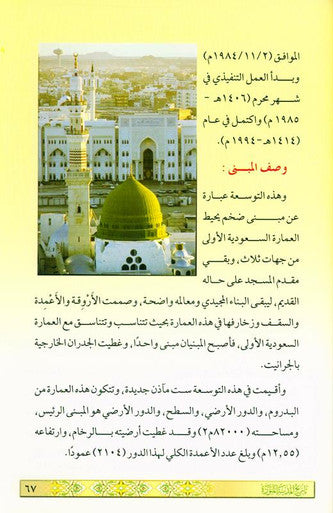 الموافق (١٩٨٤/١١/٢م)
وبدأ العمل التنفيذي في
شهر محرم (١٤٠٦هـ -
١٩٨٥م) واكتمل في عام
(١٤١٤هـ-١٩٩٤م).
وصف المبنى :
وهذه التوسعة عبارة
عن مبنى ضخم يحيط
العمارة السعودية الأولى
من جهات ثلاث، وبقي
مقدم المسجد على حاله
القديم، ليبقى البناء المجيدي ومعالمه واضحة، وصممت الأروقة والأعمدة
والسقف وزخارفها في هذه العمارة بحيث تتناسب وتتناسق مع العمارة
السعودية الأولى، فأصبح المبنيان مبنى واحدًا، وغطيت الجدران الخارجية
بالجرانيت.
وأقيمت في هذه التوسعة ست مآذن جديدة، وتتكون هذه العمارة من
البدروم، والدور الأرضي، والسطح، والدور الأرضي هو المبنى الرئيس،
ومساحته (٨٢٠٠٠م٢) وقد غطيت أرضيته بالرخام، وارتفاعه
(١٢,٥٥م) وبلغ عدد الأعمدة الكلي لهذا الدور (٢١٠٤) عمودًا.
تاريخ المدينة المنورة
٦٧